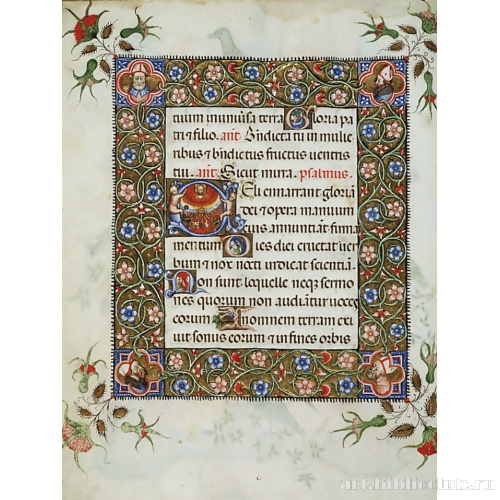 nium inuniũsa terra Gloria pa
tri & filio. añt. Bñdicta tu in mulie
ribus & bñdictus fructus uentris
tui. añt. Sicut mirra. psalmus.
Celi enarrant gloriã
dei & opera manuum
eius annuntiant firma
mentum Dies diei eructat uer
bum & nox nocti indicat scientiã
Non sunt loquelle neq; sermo
nes quorum non audiãtur uoces
eorum In omnem terram exi
uit sonus eorum & in fines orbis
art.biblioclub.ru